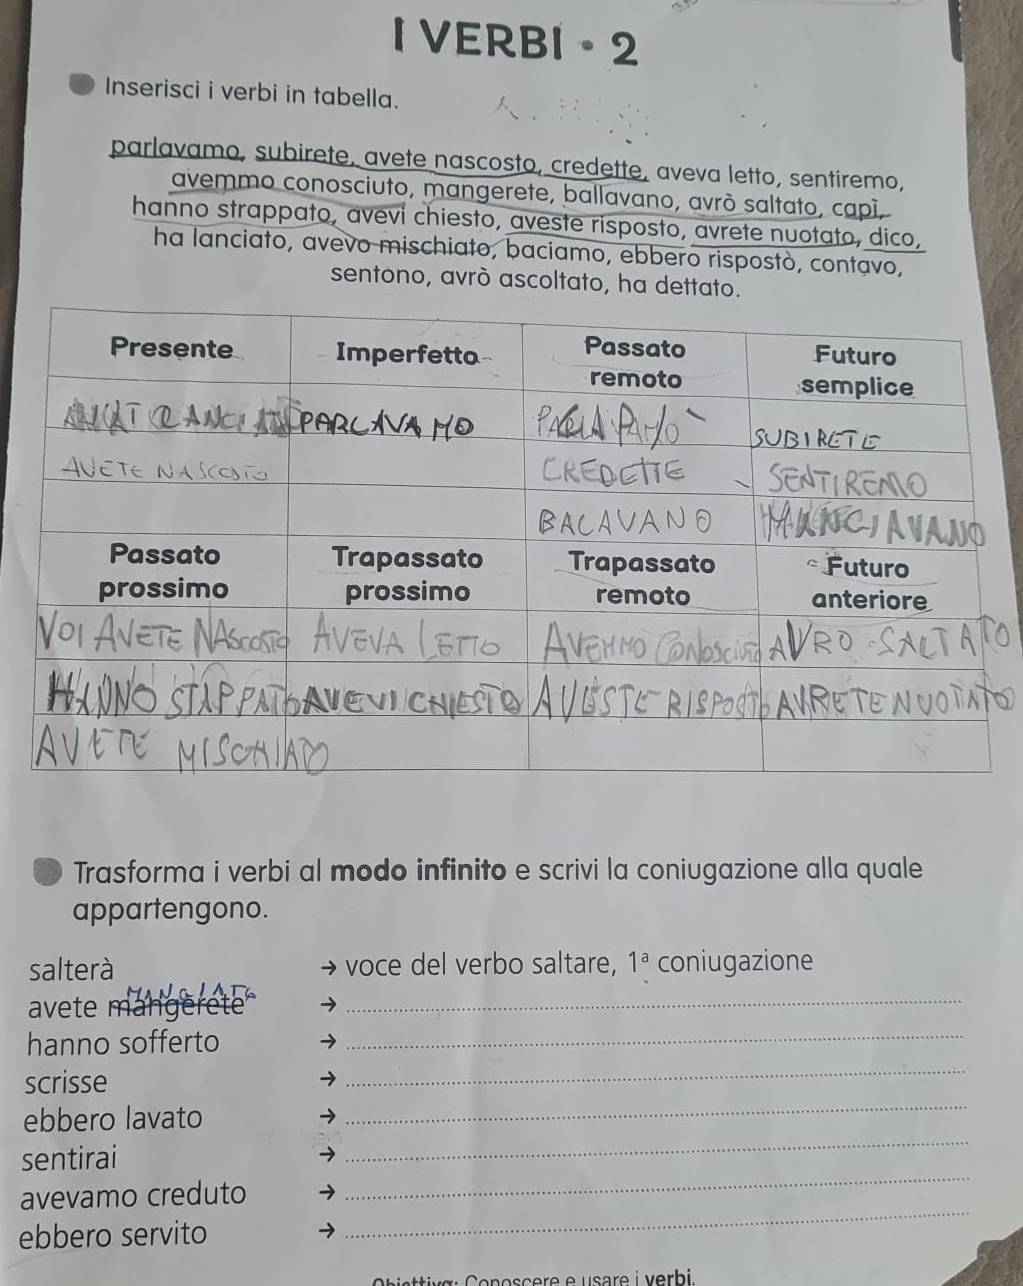 I VERBI • 2
Inserisci i verbi in tabella.
parlavamo, subirete, avete nascosto, credette, aveva letto, sentiremo,
avemmo conosciuto, mangerete, ballavano, avrò saltato, capì,
hanno strappato, avevi chiesto, aveste risposto, avrete nuotato, dico,
ha lanciato, avevo mischiato, baciamo, ebbero rispostò, contavo,
sentono, avrò ascoltato, ha dettato.
Presente Imperfetto Passato remoto Futuro semplice
PARLAVAMO SUBIRETE
AVETE NASCOSTO CREDETTE SENTIREMO
BACAVANO MANGIAVANO
Passato prossimo Trapassato prossimo Trapassato remoto Futuro anteriore
VOI AVETE NASCOSTO AVEVA LETTO AVEMMO CONOSCIUTO AVRO SALTATO
HANNO STAPPATO AVEVI CHIESTO AVESTE RISPOSTO AVRETE NUOTATO
AVETE MISCHIATO
Trasforma i verbi al modo infinito e scrivi la coniugazione alla quale
appartengono.
salterà → voce del verbo saltare, 1ª coniugazione
MANGIATO
avete mangerete →
hanno sofferto →
scrisse →
ebbero lavato →
sentirai →
avevamo creduto →
ebbero servito →
Obiettivo: Conoscere e usare i verbi.